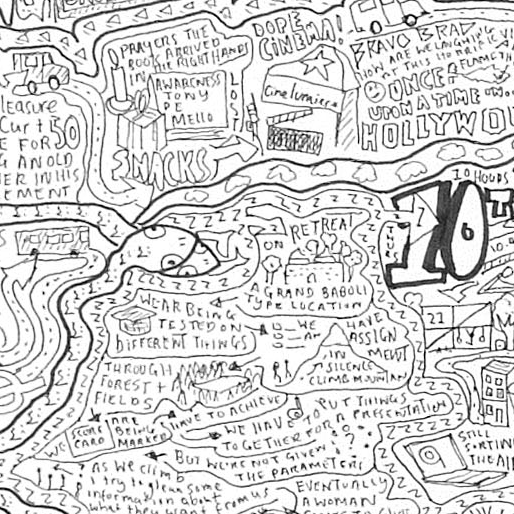 PRAYERS THE
BOOK ARRIVED
IN THE RIGHT HANDS
AWARENESS
TONY
DE
MELLO
LOST
SNACKS
DOPE
CINEMA!
Cine lumiere
BRAVO BRAD
ONCE
UPON A TIME
HOLLYWO
leasure
Curt
50
E FOR
G AN OLD
ER IN HIS
EMENT
10 HOURS
10
ON
RETREAT
A GRAND BABOLI
TYPE LOCATION
WE AR BEING
TESTED ON
DIFFERENT THINGS
WE HAVE
AN ASSIGN
MENT
IN
SILENCE
CLIMB MOUNTAIN
THROUGH
FOREST +
FIELDS
21
WE
SCORE
CARD
ARE
BEING
MARKED
HAVE TO ACHIEVE
WE HAVE TO PUT THINGS
TOGETHER FOR A PRESENTATION
BUT WE'RE NOT GIVEN
THE PARAMETERS
???
AS we climb
I try to glean some
information about
what they want from us
EVENTUALLY
A WOMAN
STILL
SORTIN
THE AI